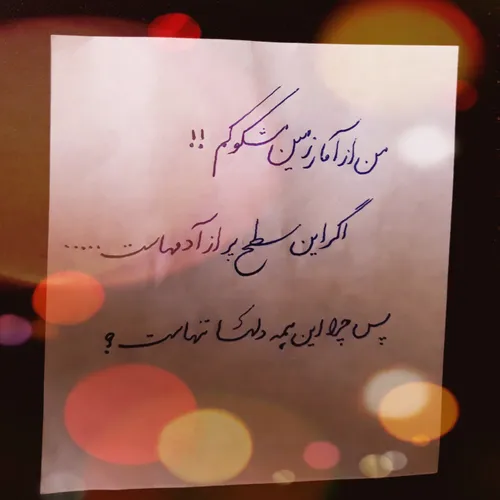 من از آمار زمین مشکوکم !!
اگر این سطح پر از آدمهاست .....
پس چرا این همه دلها تنهاست ؟